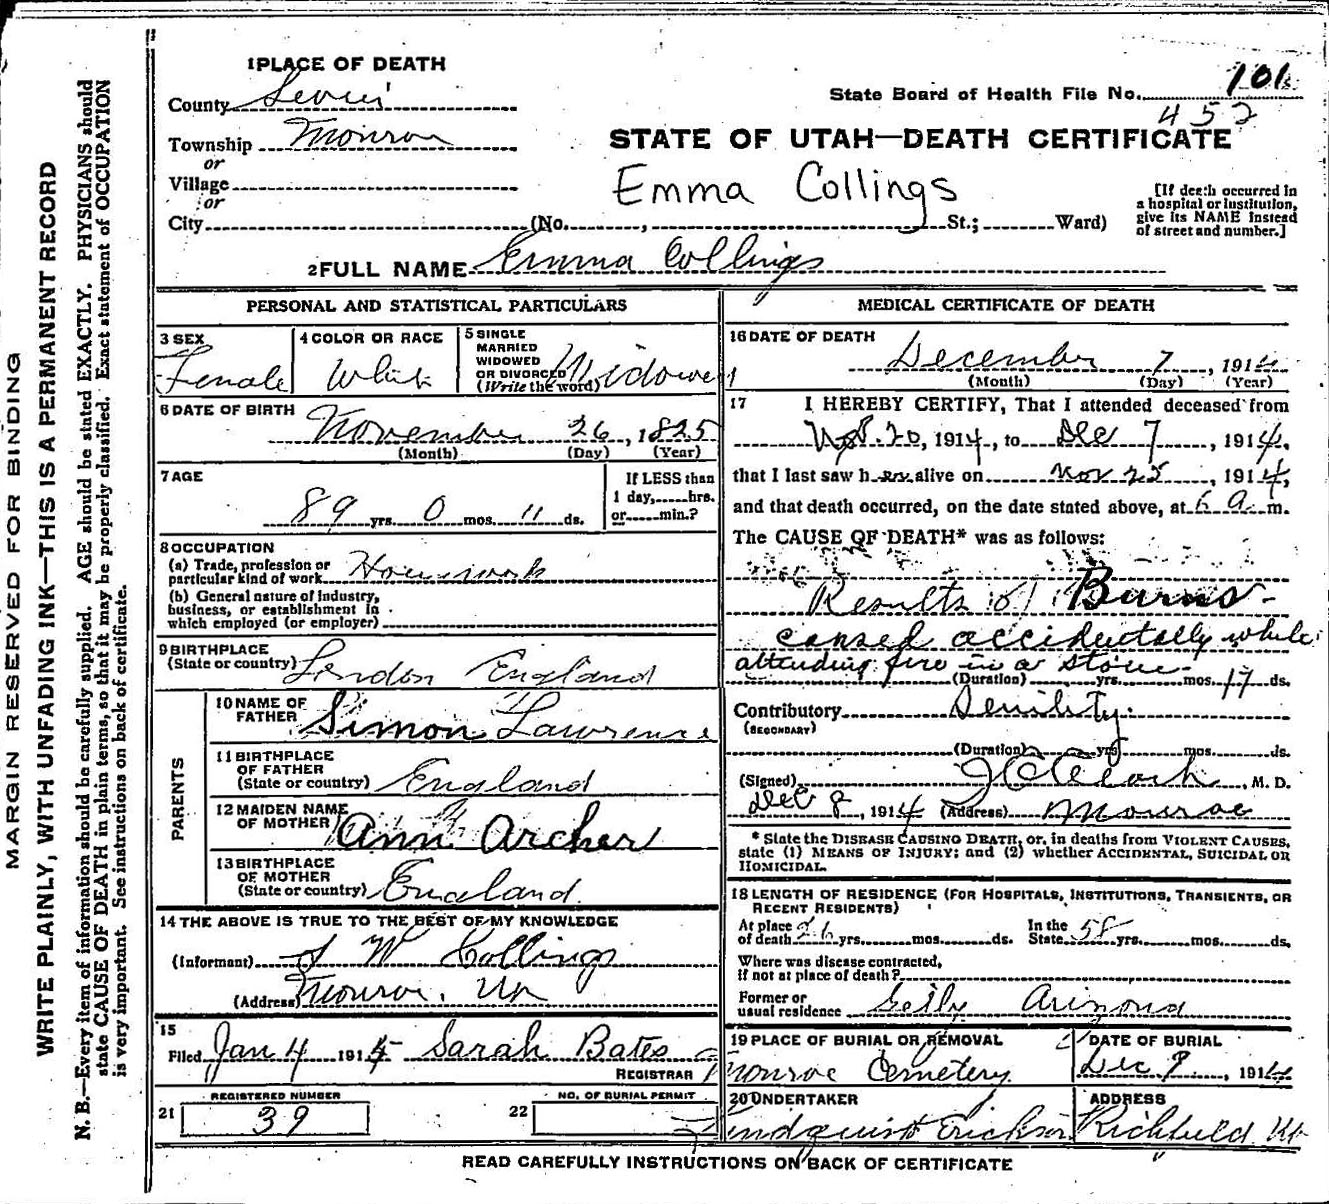 1 PLACE OF DEATH
County Sevier
Township Monroe
or
Village
or
City (No. , St.; Ward)
State Board of Health File No. 101
452
STATE OF UTAH—DEATH CERTIFICATE
Emma Collings
[If death occurred in
a hospital or institution,
give its NAME instead
of street and number.]
2 FULL NAME Emma Collings
PERSONAL AND STATISTICAL PARTICULARS
3 SEX
Female
4 COLOR OR RACE
White
5 SINGLE
MARRIED
WIDOWED
OR DIVORCED
(Write the word) Widowed
6 DATE OF BIRTH
November 26, 1825
(Month) (Day) (Year)
7 AGE
89 yrs. 0 mos. 11 ds.
If LESS than
1 day, hrs.
or min.?
8 OCCUPATION
(a) Trade, profession or
particular kind of work Housework
(b) General nature of industry,
business, or establishment in
which employed (or employer)
9 BIRTHPLACE
(State or country) London England
PARENTS
10 NAME OF
FATHER Simon Lawrence
11 BIRTHPLACE
OF FATHER
(State or country) England
12 MAIDEN NAME
OF MOTHER Ann Archer
13 BIRTHPLACE
OF MOTHER
(State or country) England.
14 THE ABOVE IS TRUE TO THE BEST OF MY KNOWLEDGE
(Informant) W Collings
(Address) Monroe, Ut
15
Filed Jan 4 1915 Sarah Bates
REGISTRAR
REGISTERED NUMBER
21 39
NO. OF BURIAL PERMIT
22
MEDICAL CERTIFICATE OF DEATH
16 DATE OF DEATH
December 7, 1914
(Month) (Day) (Year)
17 I HEREBY CERTIFY, That I attended deceased from
Nov. 20, 1914, to Dec 7, 1914,
that I last saw her alive on Nov 25, 1914,
and that death occurred, on the date stated above, at 6 a. m.
The CAUSE OF DEATH* was as follows:
Results of Burns
caused accidentally while
attending fire in a stove
(Duration) yrs. mos. 17 ds.
Contributory Senility.
(SECONDARY)
(Duration) yrs. mos. ds.
(Signed) , M. D.
Dec 8, 1914 (Address) Monroe
* State the DISEASE CAUSING DEATH, or, in deaths from VIOLENT CAUSES,
state (1) MEANS OF INJURY; and (2) whether ACCIDENTAL, SUICIDAL OR
HOMICIDAL.
18 LENGTH OF RESIDENCE (FOR HOSPITALS, INSTITUTIONS, TRANSIENTS, OR
RECENT RESIDENTS)
At place
of death 26 yrs. mos. ds.
In the
State 58 yrs. mos. ds.
Where was disease contracted,
if not at place of death?
Former or
usual residence Arizona
19 PLACE OF BURIAL OR REMOVAL
Monroe Cemetery
DATE OF BURIAL
Dec 9, 1914
20 UNDERTAKER
Lindquist Erickson
ADDRESS
Richfield Ut
READ CAREFULLY INSTRUCTIONS ON BACK OF CERTIFICATE
MARGIN RESERVED FOR BINDING
WRITE PLAINLY, WITH UNFADING INK—THIS IS A PERMANENT RECORD
N. B.—Every item of information should be carefully supplied. AGE should be stated EXACTLY. PHYSICIANS should
state CAUSE OF DEATH in plain terms, so that it may be properly classified. Exact statement of OCCUPATION
is very important. See instructions on back of certificate.